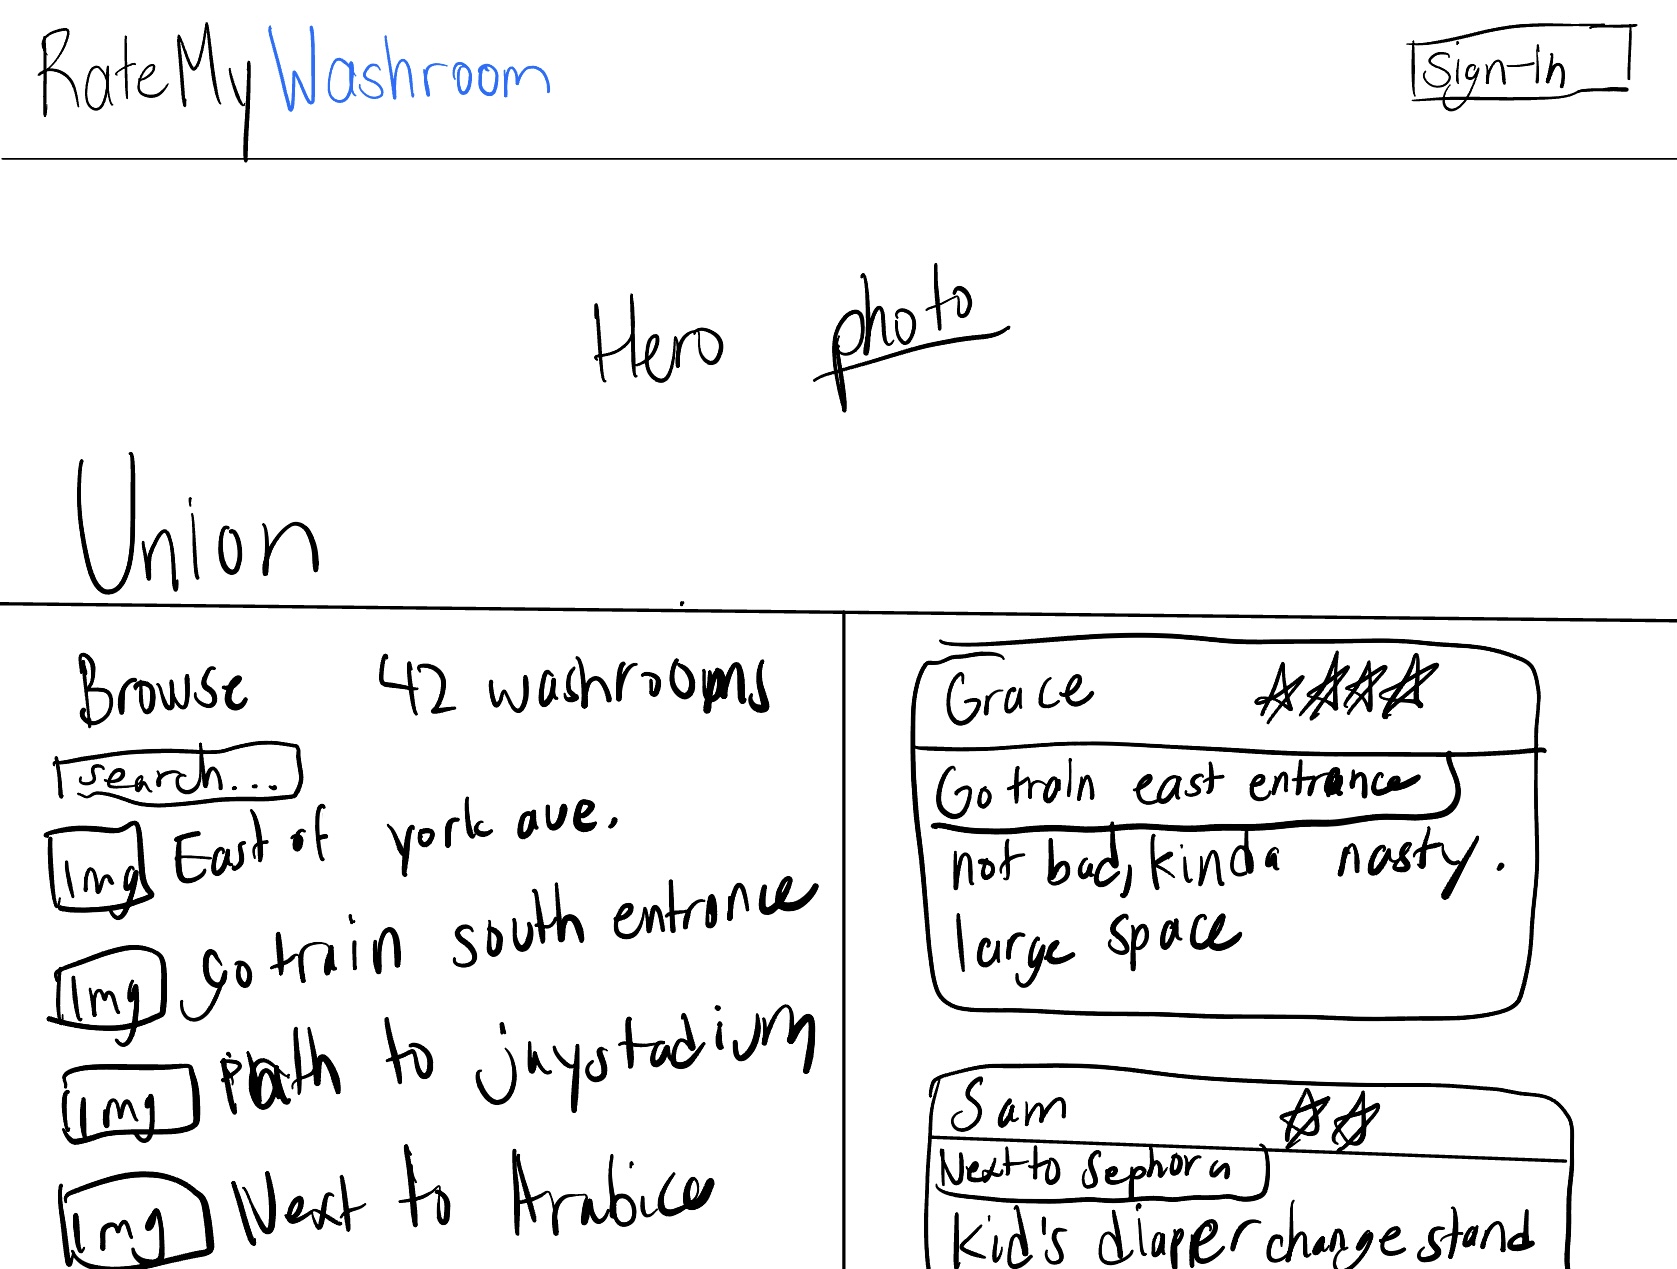 RateMyWashroom
Sign-In
Hero photo
Union
Browse 42 washrooms
search...
Img East of york ave.
Img go train south entrance
Img Path to jaystadium
Img Next to Arabica
Grace
Go train east entrance
not bad, kinda nasty.
large space
Sam
Next to Sephora
Kid's diaper change stand